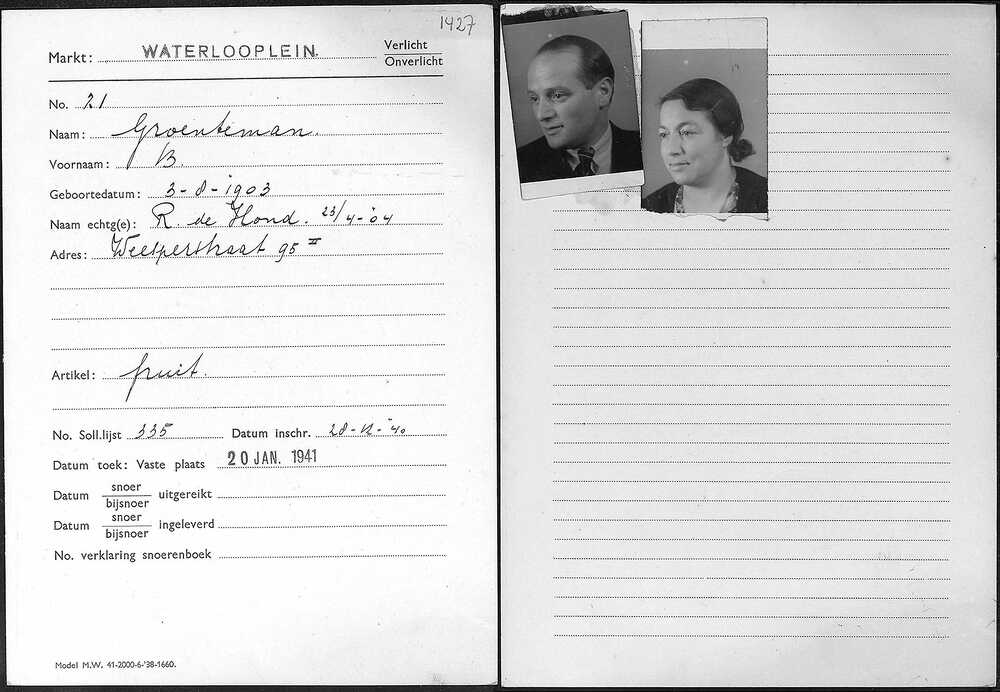 1427
Markt: WATERLOOPLEIN. Verlicht
Onverlicht
No. 21
Naam: Groenteman.
Voornaam: B.
Geboortedatum: 3-8-1903
Naam echtg(e): R. de Hond. 23/4-04
Adres: Weesperstraat 95 II
Artikel: fruit.
No. Soll.lijst 335 Datum inschr. 28-12-'40
Datum toek: Vaste plaats 20 JAN. 1941
Datum snoer/bijsnoer uitgereikt
Datum snoer/bijsnoer ingeleverd
No. verklaring snoerenboek
Model M.W. 41-2000-6-'38-1660.